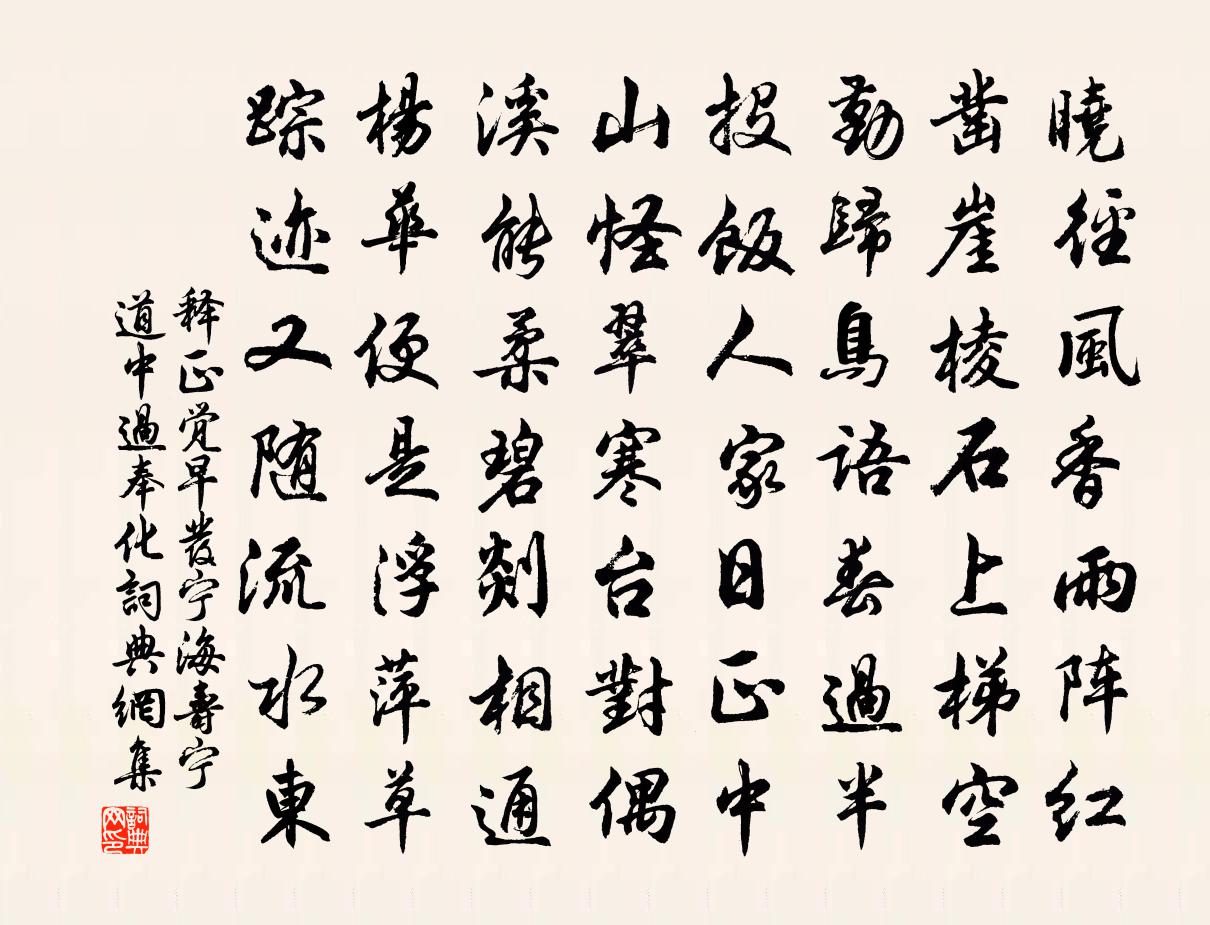 曉徑風香雨阵红
凿崖棱石上梯空
勤歸鳥語春過半
投飯人家日正中
山怪翠寒台對偶
溪能柔碧剡相通
楊華便是浮萍草
踪迹又随流水東
释正觉早發宁海壽宁
道中過奉化詞典網集
詞典
网印